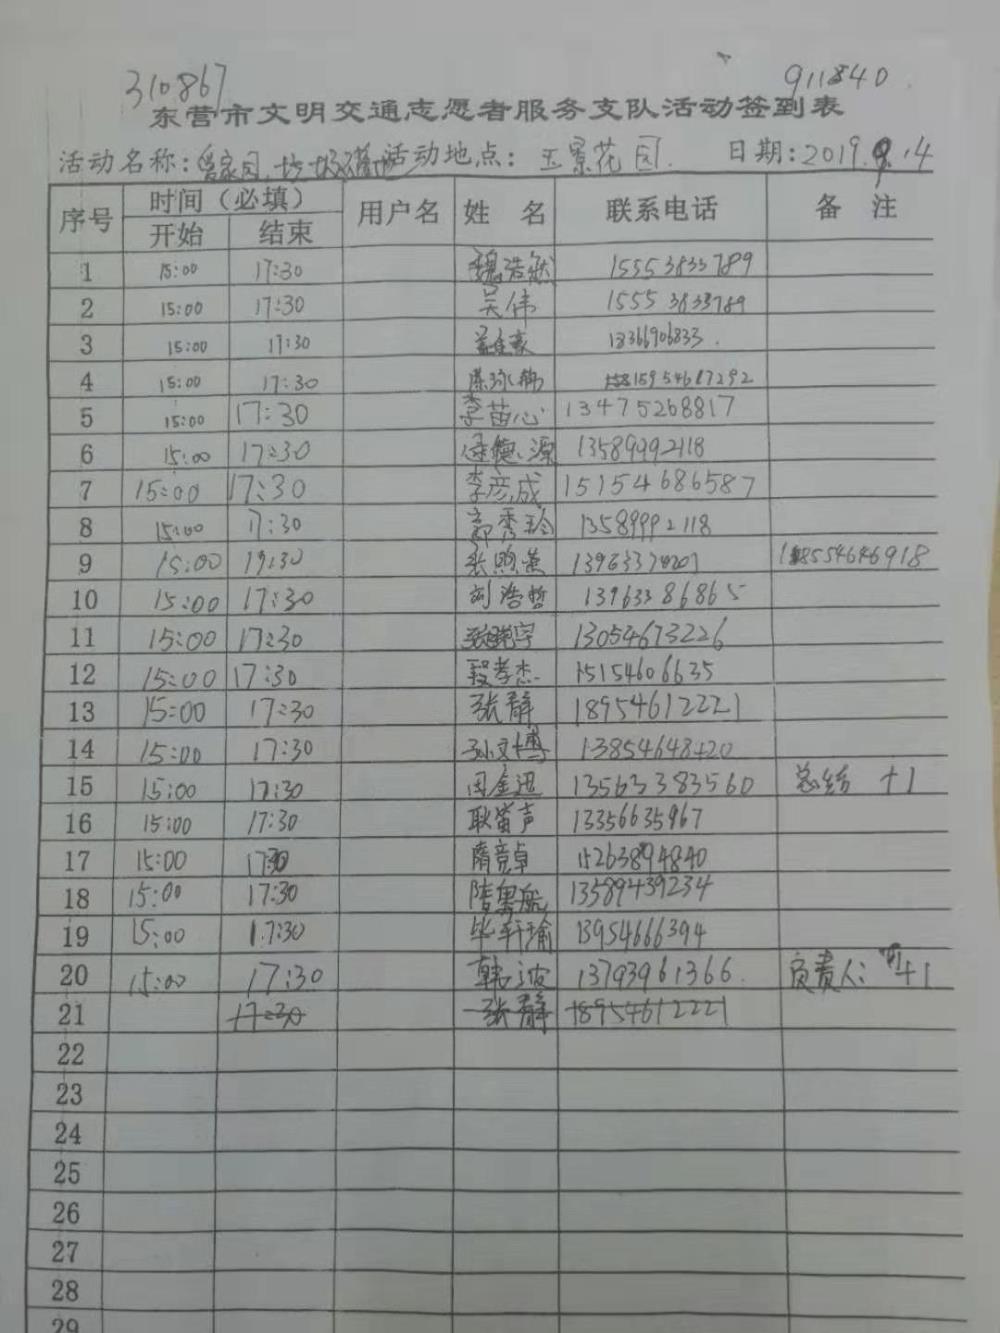 310867 911840
东营市文明交通志愿者服务支队活动签到表
活动名称: 活动地点: 玉景花园. 日期:2019.9.14
序号 时间(必填) 用户名 姓 名 联系电话 备 注
开始 结束
1 15:00 17:30 魏浩然 15553833789
2 15:00 17:30 吴伟 15553833789
3 15:00 17:30 18366906833.
4 15:00 17:30 15954687292
5 15:00 17:30 李苗心 13475268817
6 15:00 17:30 德源 13589992118
7 15:00 17:30 李彦成 15154686587
8 15:00 17:30 郭秀玲 13589992118
9 15:00 17:30 张 18554646918
10 15:00 17:30 刘浩哲 13963386865
11 15:00 17:30 13054673226
12 15:00 17:30 段孝杰 15154606635
13 15:00 17:30 张静 18954612221
14 15:00 17:30 孙文博 13854648420
15 15:00 17:30 周金迅 13563383560 总结 +1
16 15:00 17:30 耿笛声 13356635967
17 15:00 17:30 隋竞卓 15263894840
18 15:00 17:30 陆粤航 13589439234
19 15:00 17:30 毕轩瑜 13954666394
20 15:00 17:30 韩波 13793961366. 负责人: +1
21 17:30 张静 18954612221
22
23
24
25
26
27
28
29